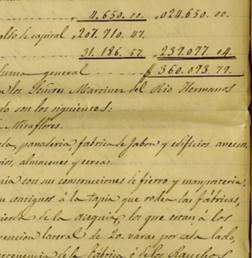 4.650.00 ,024.650.00
de capital ,207.710.47
31.186.57 237.077 04
suma general $ 360.073 79
los Señores Martinez del Rio Hermanos
do son los siguientes.
Miraflores.
la, panaderia, fabrica de Jabon y edificios anecsos
rios, almacenes y eras.
son sus construcciones de fierro y mamposteria,
contiguos á la tapia que rodea las fabricas
de la acequia, los que estan á los
lateral de 20. varas por cada lado,
de la Fabrica ó de los Ranchos